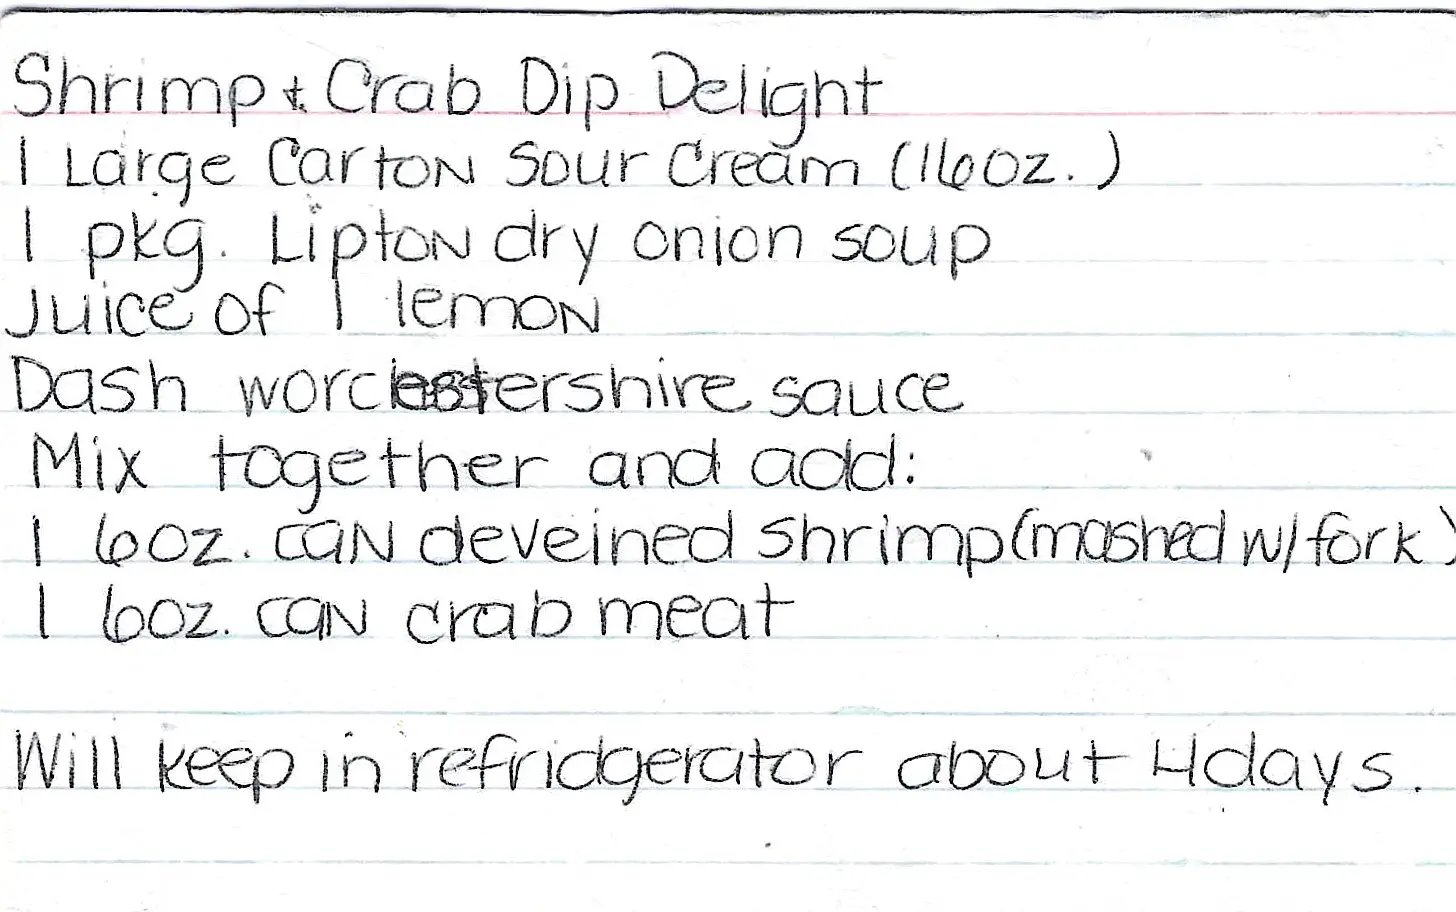 Shrimp & Crab Dip Delight
1 Large Carton Sour Cream (16oz.)
1 pkg. Lipton dry onion soup
Juice of 1 lemon
Dash worchestershire sauce
Mix together and add:
1 6oz. can deveined shrimp (mashed w/ fork)
1 6oz. can crab meat
Will keep in refridgerator about 4 days.